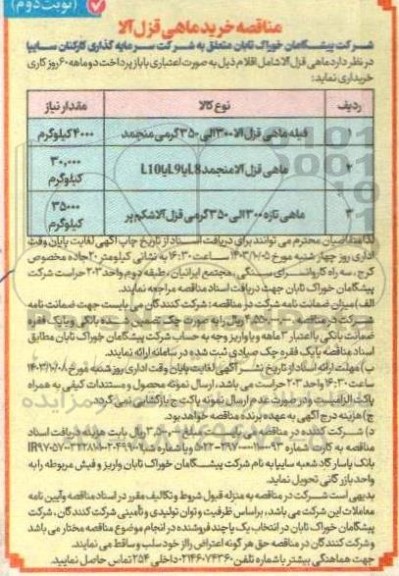 (نوبت دوم)
مناقصه خرید ماهی قزل آلا
شرکت پیشگامان خوراک تابان متعلق به شرکت سرمایه گذاری کارکنان سایپا
در نظر دارد ماهی قزل آلا شامل اقلام ذیل به صورت اعتباری با باز پرداخت دو ماهه ۶۰ روز کاری
خریداری نماید:
ردیف نوع کالا مقدار نیاز
فیله ماهی قزل آلا ۳۰۰ الی ۳۵۰ گرمی منجمد ۴۰۰۰ کیلوگرم
۲ ماهی قزل آلا منجمد L8 یا L9 یا L10 ۳۰,۰۰۰ کیلوگرم
۳ ماهی تازه ۳۰۰ الی ۳۵۰ گرمی قزل آلا شکم پر ۳۵۰۰۰ کیلوگرم
لذا متقاضیان محترم می توانند برای دریافت اسناد از تاریخ چاپ آگهی لغایت پایان وقت
اداری روز چهار شنبه مورخ ۱۴۰۳/۱۰/۵ ساعت ۱۶:۳۰ به نشانی کیلومتر ۲۰ جاده مخصوص
کرج، سه راه کاروانسرای سنگی، مجتمع ایرانیان، طبقه دوم واحد ۲۰۳ حراست شرکت
پیشگامان خوراک تابان جهت دریافت اسناد مناقصه مراجعه نمایند.
الف) میزان ضمانت نامه شرکت در مناقصه: شرکت کنندگان می بایست جهت ضمانت نامه
شرکت در مناقصه مبلغ ریال را به صورت چک تضمین شده بانکی و یا یک فقره
ضمانت بانکی با اعتبار ۳ ماهه و یا واریز وجه به حساب شرکت پیشگامان خوراک تابان مطابق
اسناد مناقصه یا یک فقره چک صیادی ثبت شده در سامانه ارائه نمایند.
ب) مهلت ارائه اسناد از تاریخ نشر آگهی لغایت پایان وقت اداری روز شنبه مورخ ۱۴۰۳/۱۰/۰۸
ساعت ۱۶:۳۰ واحد ۲۰۳ حراست می باشد، ارسال نمونه محصول و مستندات کیفی به همراه
پاکت الزامیست و در صورت عدم ارسال نمونه پاکت ج بازگشایی نمی گردد.
ج) هزینه درج آگهی به عهده برنده مناقصه خواهد بود.
د) شرکت کننده در مناقصه می بایست مبلغ ریال بابت هزینه دریافت اسناد
مناقصه به کارت شماره و یا شماره شبا
بانک پاسارگاد شعبه سایپا به نام شرکت پیشگامان خوراک تابان واریز و فیش مربوطه را به
واحد بازرگانی تحویل نماید.
بدیهی است شرکت در مناقصه به منزله قبول شروط و تکالیف مقرر در اسناد مناقصه و آیین نامه
معاملات این شرکت می باشد، براساس ظرفیت و توان تولیدی و تأمینی شرکت کنندگان، شرکت
پیشگامان خوراک تابان در انتخاب یک یا چند فروشنده در انجام موضوع مناقصه مختار می باشد
و شرکت کنندگان در مناقصه حق هر گونه اعتراض را از خود سلب و ساقط می نمایند.
جهت هماهنگی بیشتر با شماره تلفن ۰۲۱۴۶۰۷۴۳۶۰ داخلی ۲۵۴ تماس حاصل نمایید.